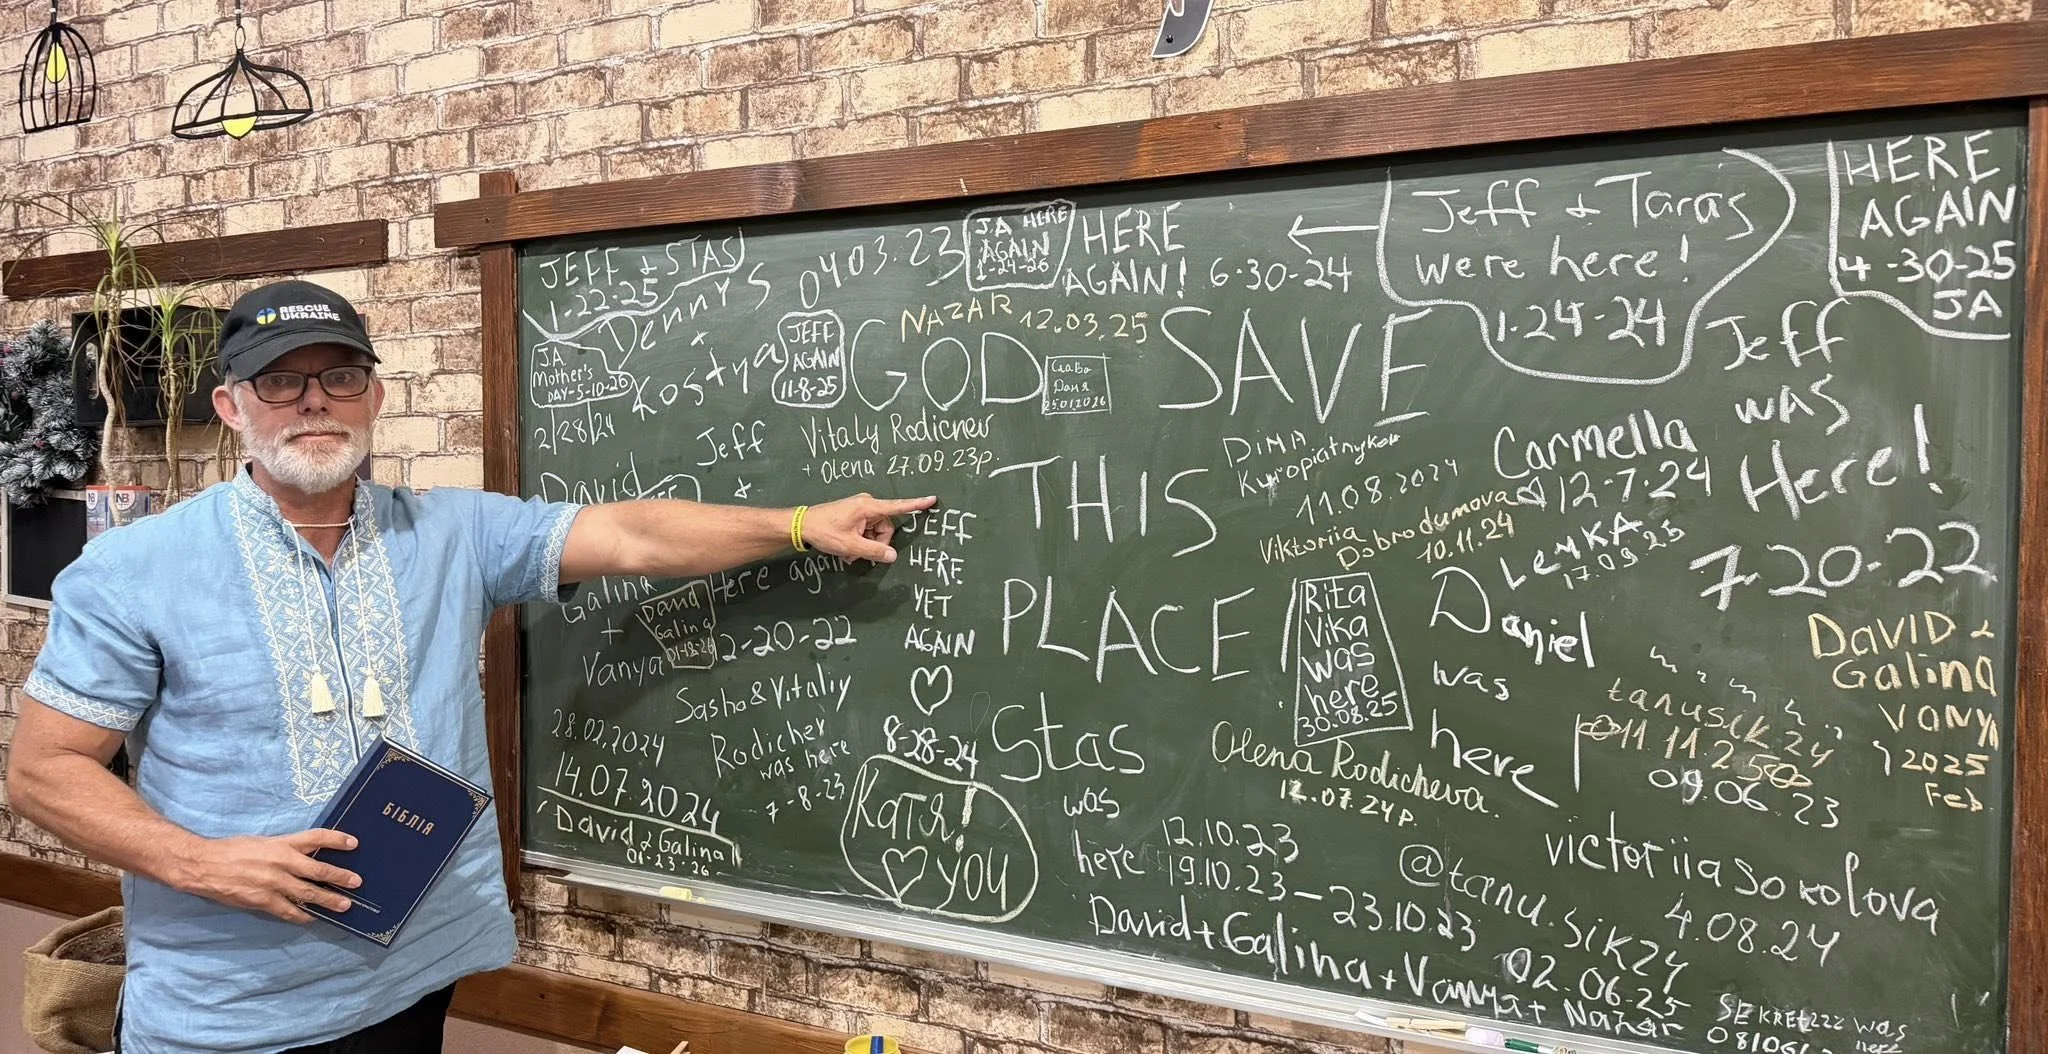 RESCUE
UKRAINE
NB
NB
БІБЛІЯ
JEFF & STAS
1-22-25
Dennys
+
Kostya
JA
Mother's
DAY-5-10-26
2/28/24
04.03.23
JA HERE
AGAIN
1-24-26
HERE
AGAIN! 6-30-24
Jeff & Taras
were here!
1-24-24
HERE
AGAIN
4-30-25
JA
NAZAR 12.03.25
JEFF
AGAIN
11-8-25
GOD SAVE
THIS
PLACE!
Слава
Даня
25.01.2026
Jeff
was
Here!
7-20-22
David
Jeff
&
Vitaly Rodichev
+ Olena 27.09.23р.
DiMA
Kuropiatnykov
11.08.2024
Carmella
12-7-24
Viktoriia
Dobrodumova
10.11.24
LeMKA
17.09.25
JEFF
HERE
YET
AGAIN
8-28-24
Galina
+
Vanya
David
Galina
01-19-26
Here again
12-20-22
Rita
Vika
was
here
30.08.25
Daniel
was
here
DAVID &
Galina
VANYA
2025
Feb.
tanusik24
11.11.25
09.06.23
Sasha & Vitaliy
Rodichev
was here
7-8-23
28.02.2024
14.07.2024
David & Galina
01-23-26
Катя!
YOU
Stas
was
here
12.10.23
19.10.23-23.10.23
Olena Rodicheva.
12.07.24р.
victoriiasokolova
4.08.24
@tanu.sik24
02.06.25
David + Galina + Vanya + Nazar
SEKRETZZZ was
here